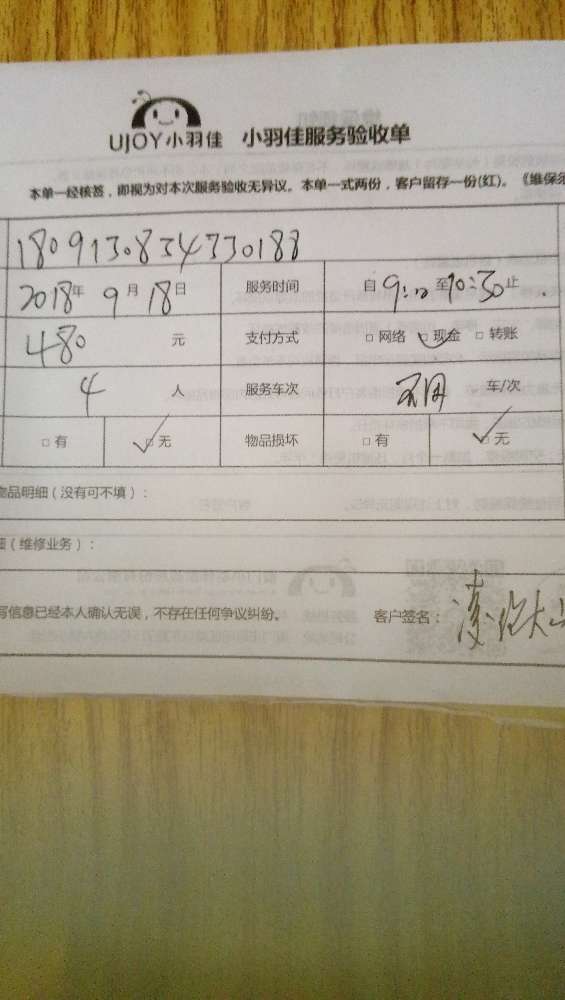 UJOY小羽佳 小羽佳服务验收单
本单一经核签，即视为对本次服务验收无异议。本单一式两份，客户留存一份(红)。《维保须
1809130834330188
2018年 9月18日 服务时间 自9: 至10:30止
480 元 支付方式 □网络 □现金 □转账
4 人 服务车次 车/次
□有 □无 物品损坏 □有 □无
物品明细（没有可不填）：
（维修业务）：
写信息已经本人确认无误，不存在任何争议纠纷。 客户签名：